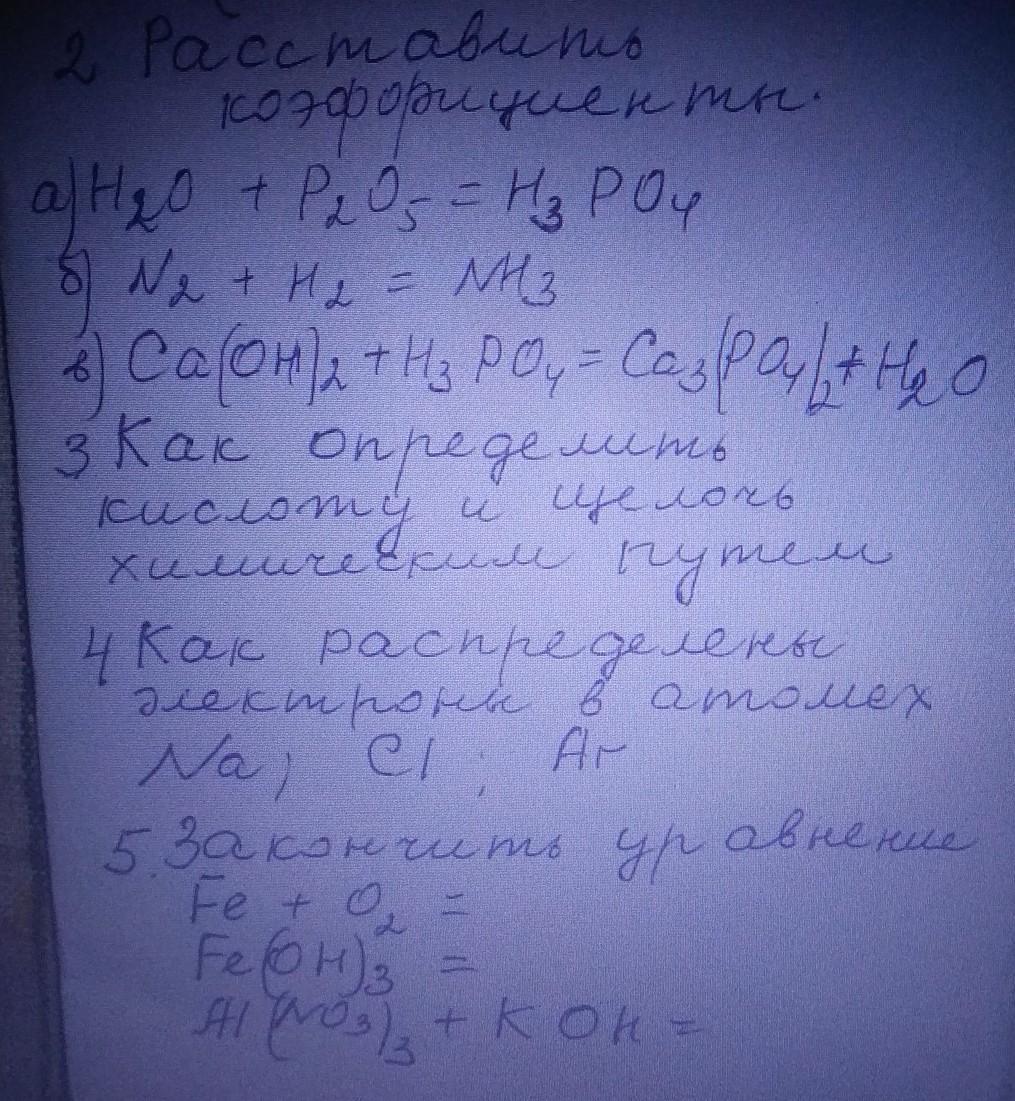 2 Расставить
коэффициенты.
а) H₂O + P₂O₅ = H₃PO₄
б) N₂ + H₂ = NH₃
в) Ca(OH)₂ + H₃PO₄ = Ca₃(PO₄)₂ + H₂O
3 Как определить
кислоту и щелочь
химическим путем
4 Как распределены
электроны в атомех
Na; Cl; Ar
5. Закончить уравнение
Fe + O₂ =
Fe(OH)₃ =
Al(NO₃)₃ + KOH =